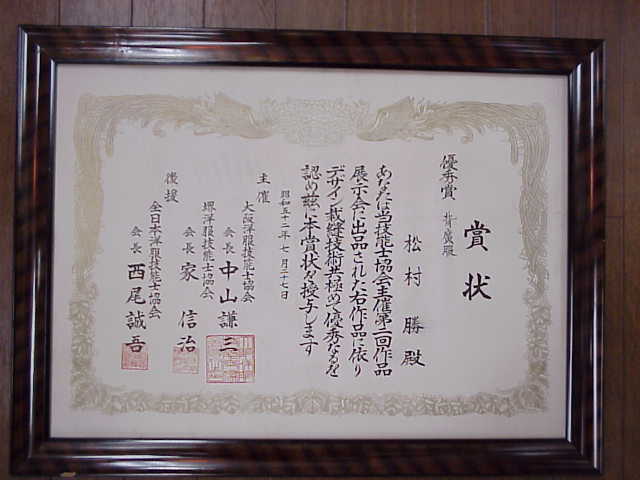 賞状
優秀賞 背廣服
松村 勝 殿
あなたは当技能士協会主催第二回作品
展示会に出品された右作品に依り
デザイン裁縫技術共極めて優秀なるを
認め茲に本賞状を授与します
昭和五十二年七月二十七日
主催
大阪洋服技能士協会
会長 中山謙三
堺洋服技能士協会
会長 家 信治
後援
全日本洋服技能士協会
会長 西尾誠吾